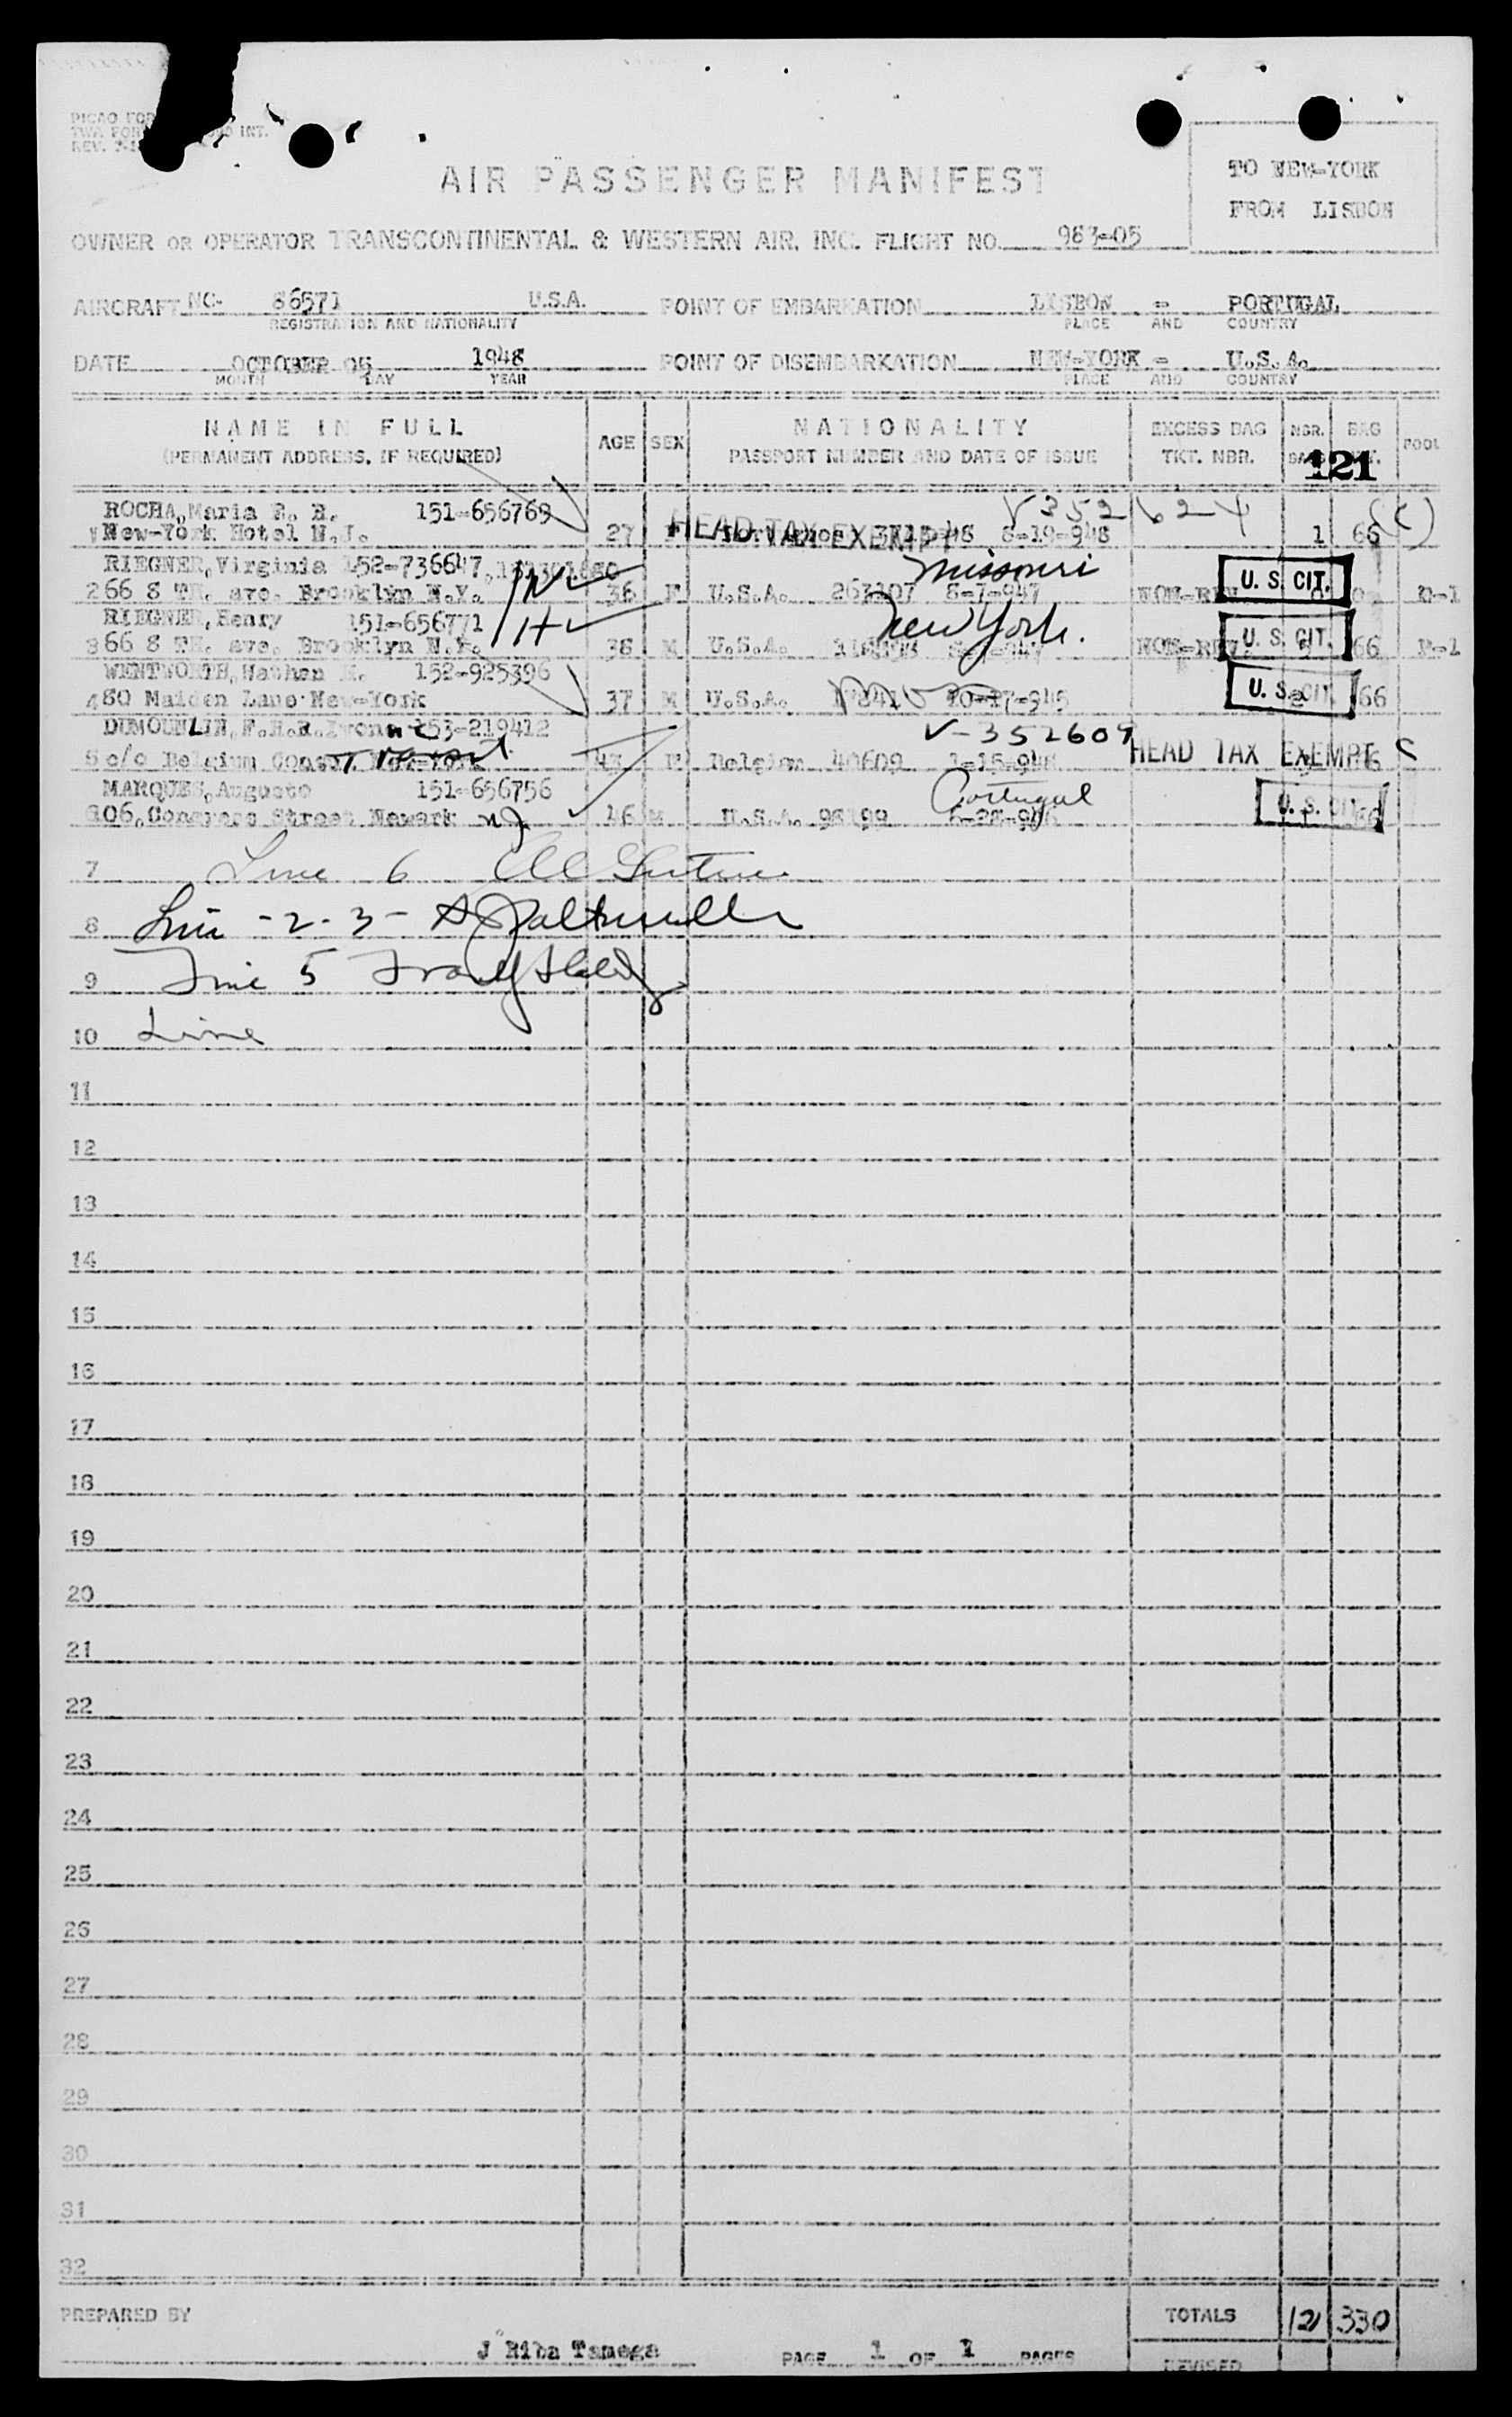 TO NEW-YORK
FROM LISBON
AIR PASSENGER MANIFEST
OWNER OR OPERATOR TRANSCONTINENTAL & WESTERN AIR, INC. FLIGHT NO. 983-05
AIRCRAFT NC- 86571 U.S.A. POINT OF EMBARKATION LISBON - PORTUGAL
REGISTRATION AND NATIONALITY PLACE AND COUNTRY
DATE OCTOBER 05 1948 POINT OF DISEMBARKATION NEW-YORK - U.S.A.
MONTH DAY YEAR PLACE AND COUNTRY
NAME IN FULL AGE SEX NATIONALITY EXCESS BAG NBR. BAG POOL
(PERMANENT ADDRESS, IF REQUIRED) PASSPORT NUMBER AND DATE OF ISSUE TKT. NBR.
121
ROCHA, Maria 151-656769 V352624
New-York Hotel N.J. 27 HEAD TAX EXEMPT 8-19-948 1 66 (C)
RIEGNER, Virginia 152-736647 Missouri
2 66 8 TH. ave. Brooklyn N.Y. 36 F U.S.A. 8-7-947 NON-REV U. S. CIT.
RIEGNER, Henry 151-656771 New York.
3 66 8 TH. ave. Brooklyn N.Y. 38 M U.S.A. NON-REV U. S. CIT. 66
WENTWORTH, Nathan H. 152-925396
4 80 Maiden Lane New-York 37 M U.S.A. 10-17-945 U. S. CIT. 66
DUMOULIN, F. 153-219412 V-352609
5 c/o Belgium F Belgian 40609 1-15-948 HEAD TAX EXEMPT C
MARQUES, Augusto 151-656756 Portugal
6 106, Congress Street Newark NJ 46 M U.S.A. 98199 U. S. CIT.
7 Line 6
8 Line -2-3-
9 Line 5
10 Line
11
12
13
14
15
16
17
18
19
20
21
22
23
24
25
26
27
28
29
30
31
32
PREPARED BY TOTALS 12 330
J Riba Tamega PAGE 1 OF 1 PAGES REVISED